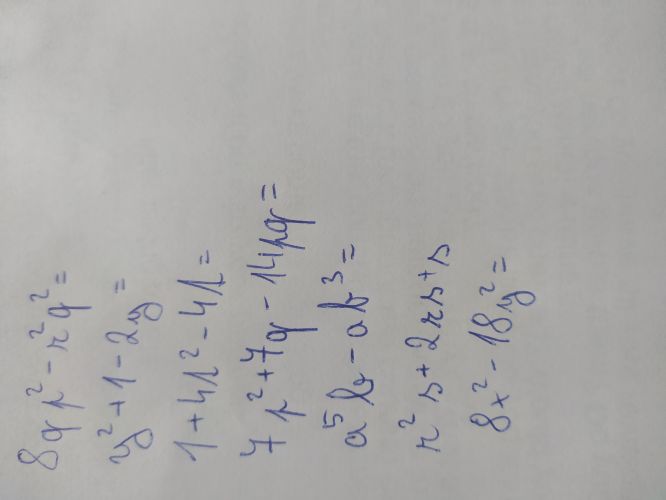 8qp² - r²q² =
y² + 1 - 2y =
1 + 4p² - 4p =
7p² + 7q - 14pq =
a⁵b - ab³ =
r²s + 2rs + s
8x² - 18y² =